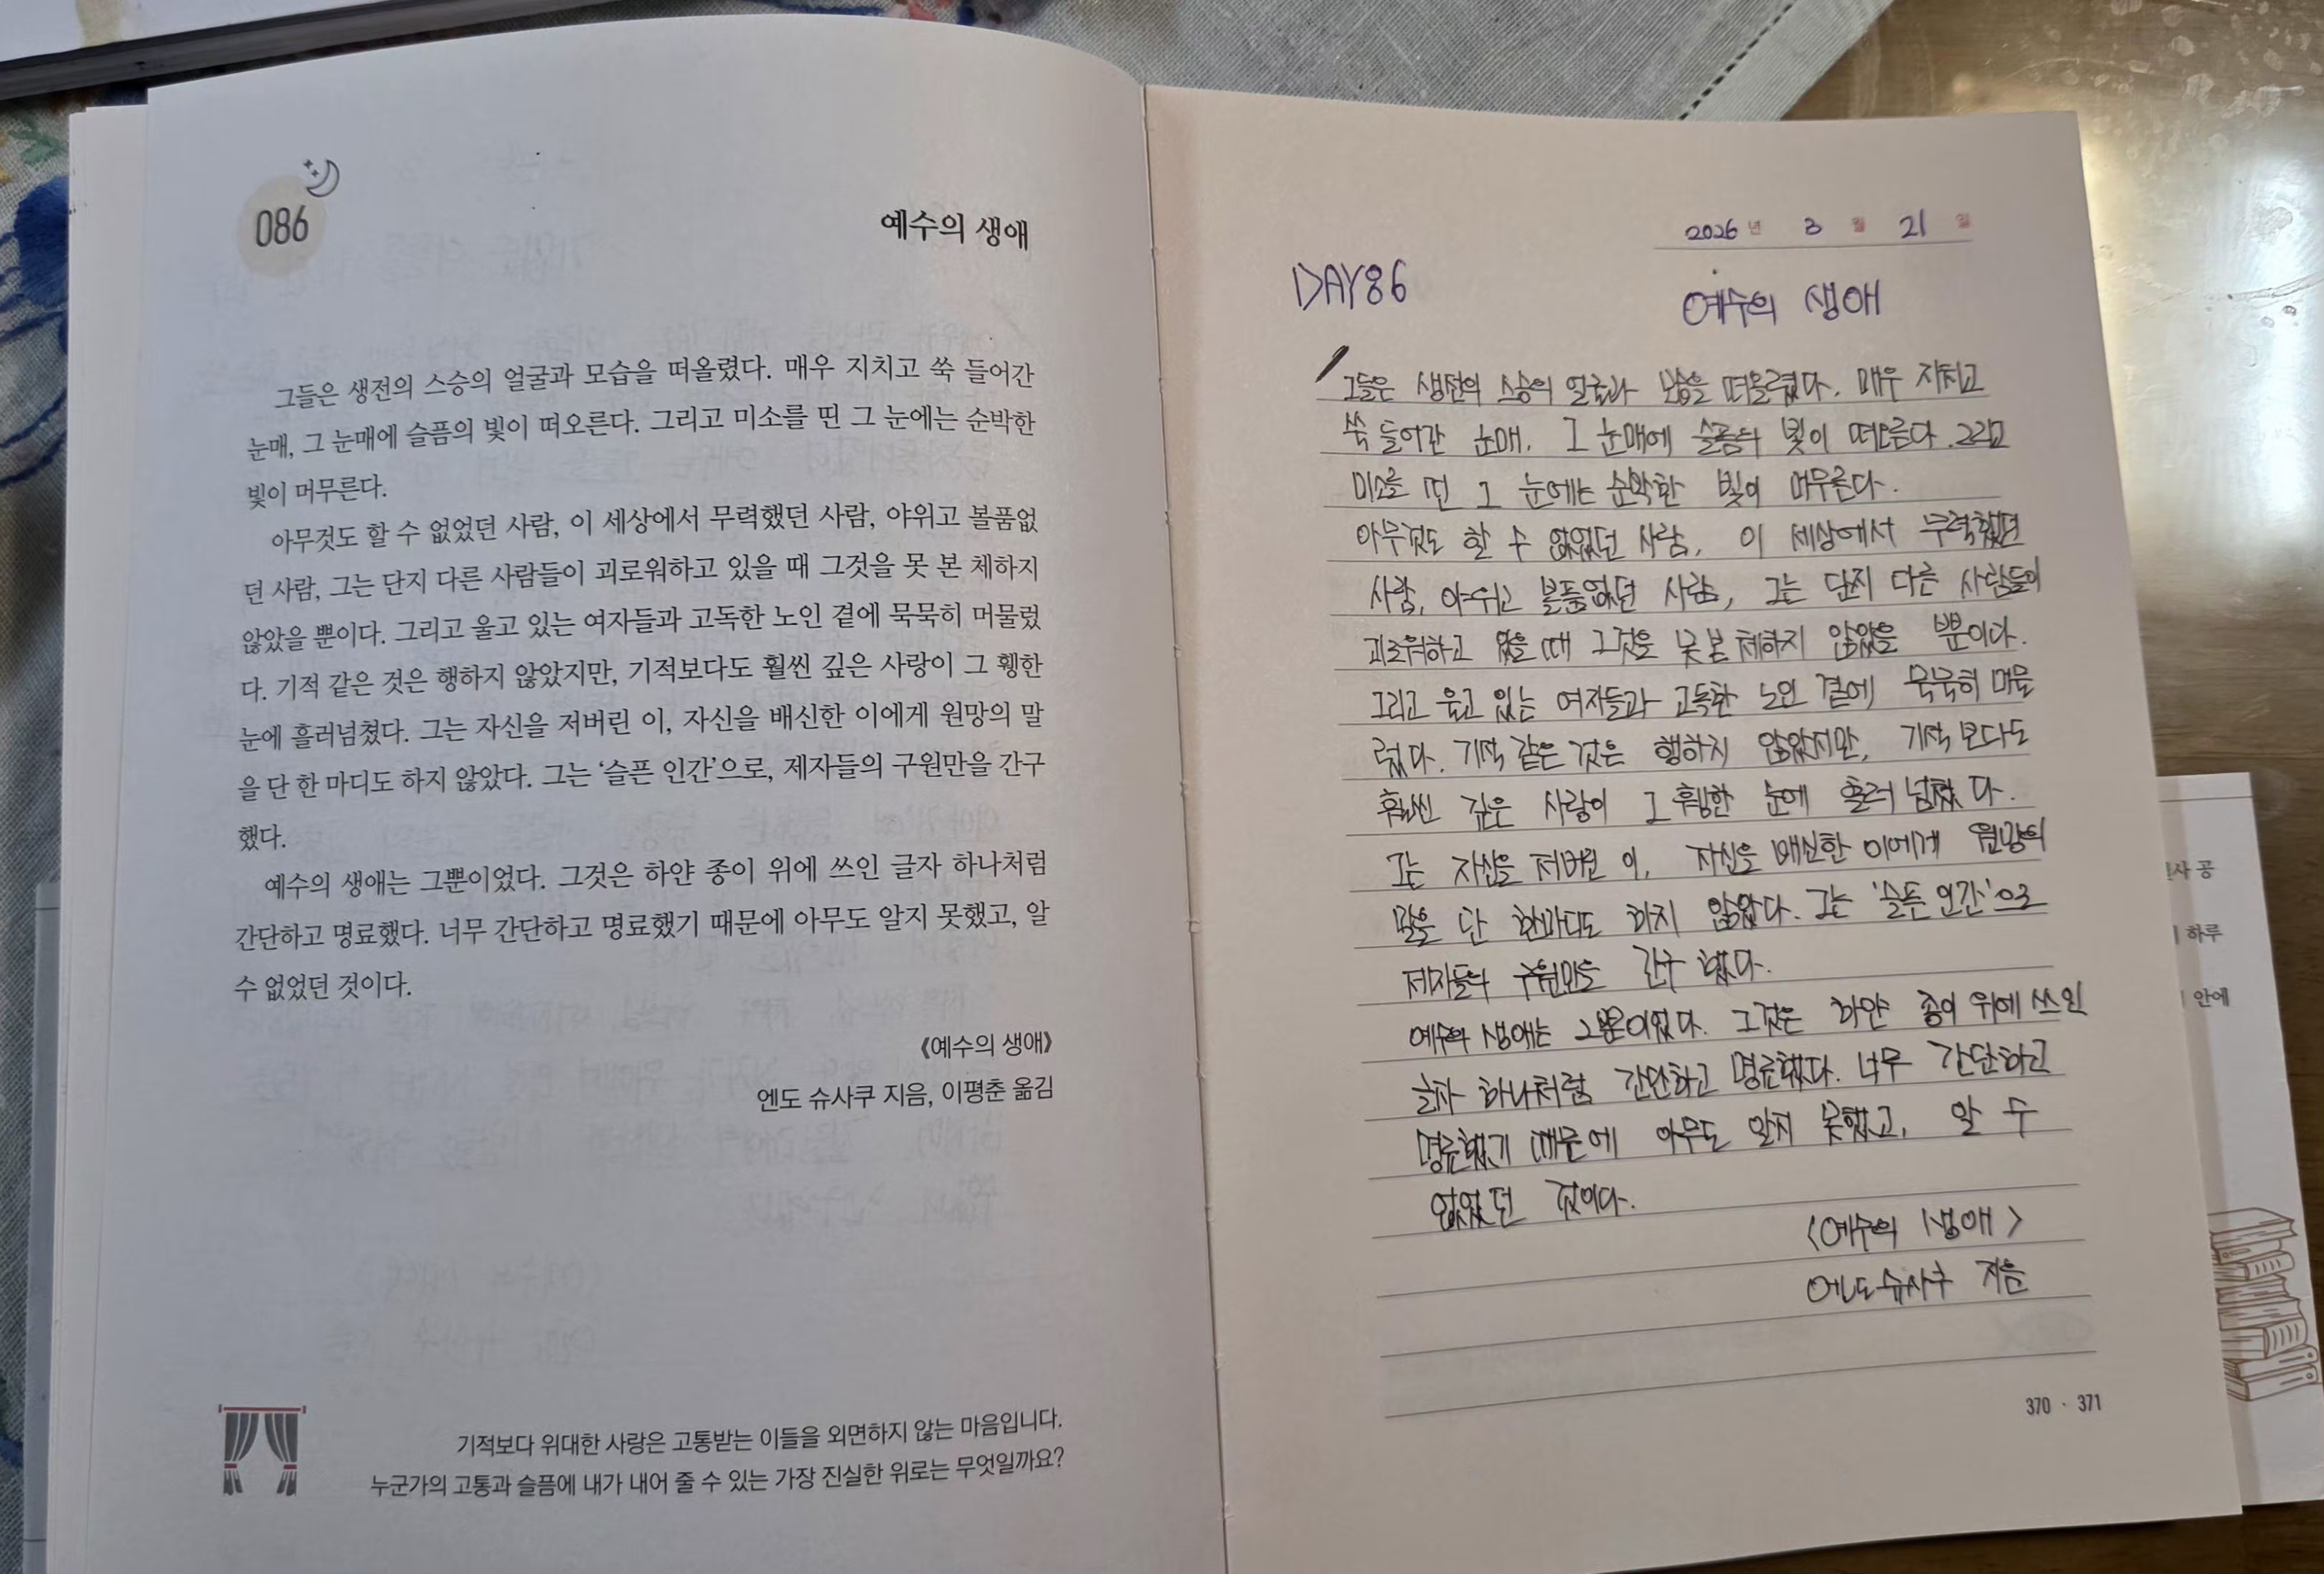 086
예수의 생애
그들은 생전의 스승의 얼굴과 모습을 떠올렸다. 매우 지치고 쑥 들어간
눈매, 그 눈매에 슬픔의 빛이 떠오른다. 그리고 미소를 띤 그 눈에는 순박한
빛이 머무른다.
아무것도 할 수 없었던 사람, 이 세상에서 무력했던 사람, 야위고 볼품없
던 사람, 그는 단지 다른 사람들이 괴로워하고 있을 때 그것을 못 본 체하지
않았을 뿐이다. 그리고 울고 있는 여자들과 고독한 노인 곁에 묵묵히 머물렀
다. 기적 같은 것은 행하지 않았지만, 기적보다도 훨씬 깊은 사랑이 그 휑한
눈에 흘러넘쳤다. 그는 자신을 저버린 이, 자신을 배신한 이에게 원망의 말
을 단 한 마디도 하지 않았다. 그는 ‘슬픈 인간’으로, 제자들의 구원만을 간구
했다.
예수의 생애는 그뿐이었다. 그것은 하얀 종이 위에 쓰인 글자 하나처럼
간단하고 명료했다. 너무 간단하고 명료했기 때문에 아무도 알지 못했고, 알
수 없었던 것이다.
《예수의 생애》
엔도 슈사쿠 지음, 이평춘 옮김
기적보다 위대한 사랑은 고통받는 이들을 외면하지 않는 마음입니다.
누군가의 고통과 슬픔에 내가 내어 줄 수 있는 가장 진실한 위로는 무엇일까요?
2026년 3월 21일
DAY86
예수의 생애
그들은 생전의 스승의 얼굴과 모습을 떠올렸다. 매우 지치고
쑥 들어간 눈매, 그 눈매에 슬픔의 빛이 떠오른다. 그리고
미소를 띤 그 눈에는 순박한 빛이 머무른다.
아무것도 할 수 없었던 사람, 이 세상에서 무력했던
사람, 야위고 볼품없었던 사람, 그는 단지 다른 사람들이
괴로워하고 있을 때 그것을 못 본 체하지 않았을 뿐이다.
그리고 울고 있는 여자들과 고독한 노인 곁에 묵묵히 머물
렀다. 기적 같은 것은 행하지 않았지만, 기적보다도
훨씬 깊은 사랑이 그 휑한 눈에 흘러 넘쳤다.
그는 자신을 저버린 이, 자신을 배신한 이에게 원망의
말을 단 한마디도 하지 않았다. 그는 '슬픈 인간'으로
제자들의 구원만을 간구 했다.
예수의 생애는 그뿐이었다. 그것은 하얀 종이 위에 쓰인
글자 하나처럼 간단하고 명료했다. 너무 간단하고
명료했기 때문에 아무도 알지 못했고, 알 수
없었던 것이다.
<예수의 생애>
엔도슈사쿠 지음
370 · 371
사 공
하루
안에